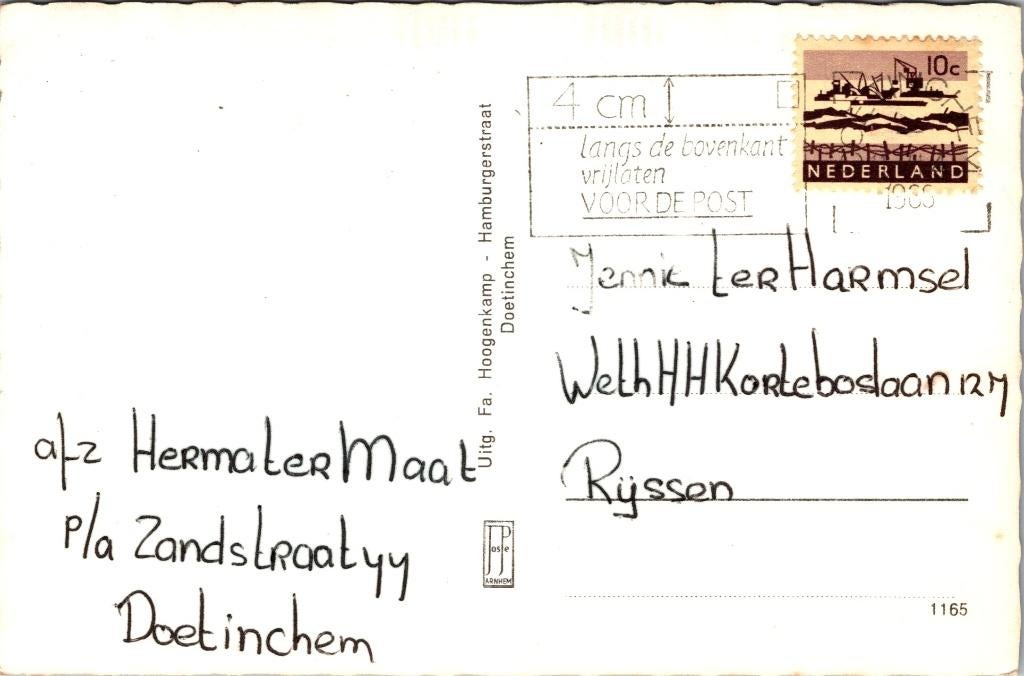 4 cm
langs de bovenkant
vrijlaten
VOOR DE POST
10c
NEDERLAND
Jennie ter Harmsel
Weth HH Korteboslaan
Rijssen
afz Herma ter Maat
p/a Zandstraat
Doetinchem
Uitg. Fa. Hoogenkamp - Hamburgerstraat
Doetinchem
JosPé
ARNHEM
1165